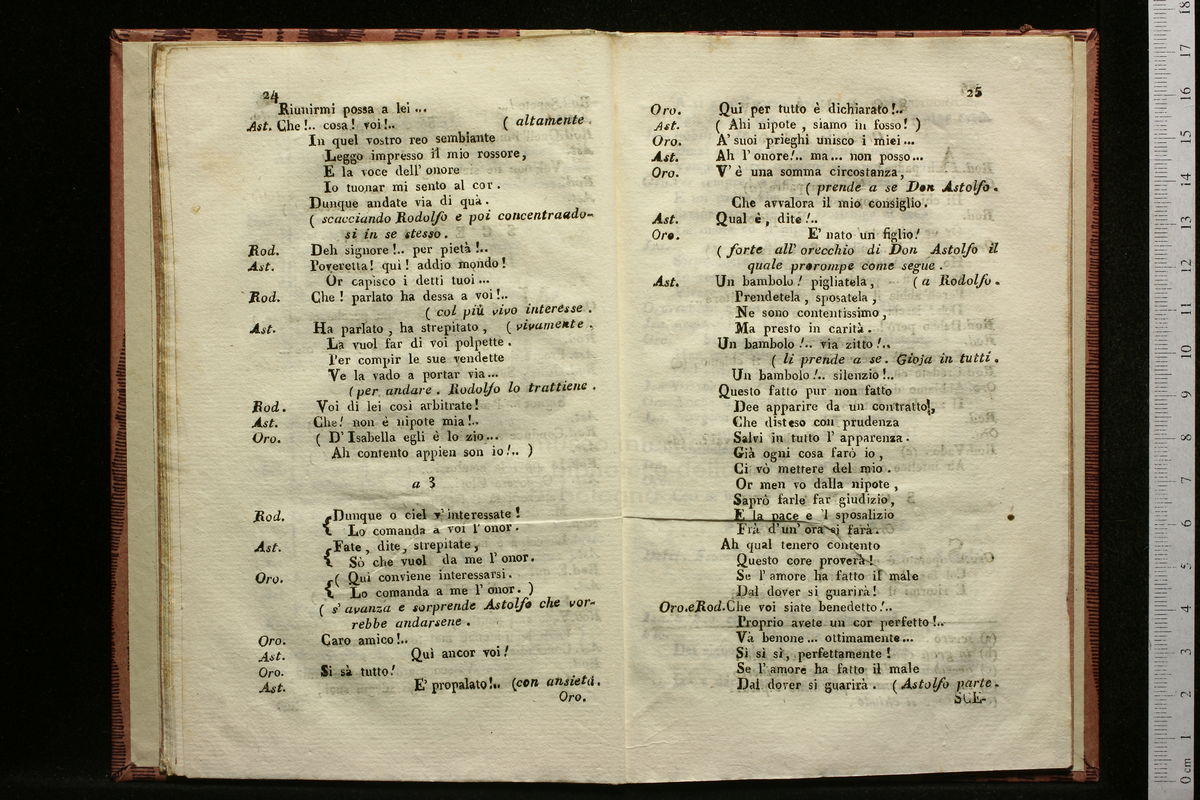 24
Riunirmi possa a lei ...
Ast. Che !.. cosa ! voi !.. ( altamente .
In quel vostro reo sembiante
Leggo impresso il mio rossore,
E la voce dell' onore
Io tuonar mi sento al cor .
Dunque andate via di quà .
( scacciando Rodolfo e poi concentrando-
si in se stesso .
Rod. Deh signore !.. per pietà !..
Ast. Poveretta ! qui ! addio mondo !
Or capisco i detti tuoi ...
Rod. Che ! parlato ha dessa a voi !..
( col più vivo interesse .
Ast. Ha parlato , ha strepitato , ( vivamente .
La vuol far di voi polpette .
Per compir le sue vendette
Ve la vado a portar via ...
( per andare . Rodolfo lo trattiene .
Rod. Voi di lei così arbitrate !
Ast. Che ! non è nipote mia !..
Oro. ( D' Isabella egli è lo zio ...
Ah contento appien son io !.. )
a 3
Rod. Dunque o ciel v' interessate !
Lo comanda a voi l' onor .
Ast. Fate , dite , strepitate ,
Sò che vuol da me l' onor .
Oro. ( Qui conviene interessarsi .
Lo comanda a me l' onor . )
( s' avanza e sorprende Astolfo che vor-
rebbe andarsene .
Oro. Caro amico !..
Ast. Quì ancor voi !
Oro. Si sà tutto !
Ast. E' propalato !.. (con ansietá .
Oro.
25
Oro. Qui per tutto è dichiarato !..
Ast. ( Ahi nipote , siamo in fosso ! )
Oro. A' suoi prieghi unisco i miei ...
Ast. Ah l' onore !.. ma ... non posso ...
Oro. V' è una somma circostanza ,
( prende a se Don Astolfo .
Che avvalora il mio consiglio .
Ast. Qual è , dite !..
Oro. E' nato un figlio !
( forte all' orecchio di Don Astolfo il
quale prorompe come segue .
Ast. Un bambolo ! pigliatela , ( a Rodolfo .
Prendetela , sposatela ,
Ne sono contentissimo ,
Ma presto in carità .
Un bambolo !.. via zitto !..
( li prende a se . Gioja in tutti .
Un bambolo !.. silenzio !..
Questo fatto pur non fatto
Dee apparire da un contratto!,
Che disteso con prudenza
Salvi in tutto l' apparenza .
Già ogni cosa farò io ,
Ci vò mettere del mio .
Or men vo dalla nipote ,
Saprò farle far giudizio ,
E la pace e 'l sposalizio
Frà d' un' ora si farà .
Ah qual tenero contento
Questo core proverà !
Se l' amore ha fatto il male
Dal dover si guarirà !
Oro.eRod.Che voi siate benedetto !..
Proprio avete un cor perfetto !..
Và benone ... ottimamente ...
Sì sì sì , perfettamente !
Se l' amore ha fatto il male
Dal dover si guarirà . ( Astolfo parte .
SCE-
0 cm 1 2 3 4 5 6 7 8 9 10 11 12 13 14 15 16 17 18